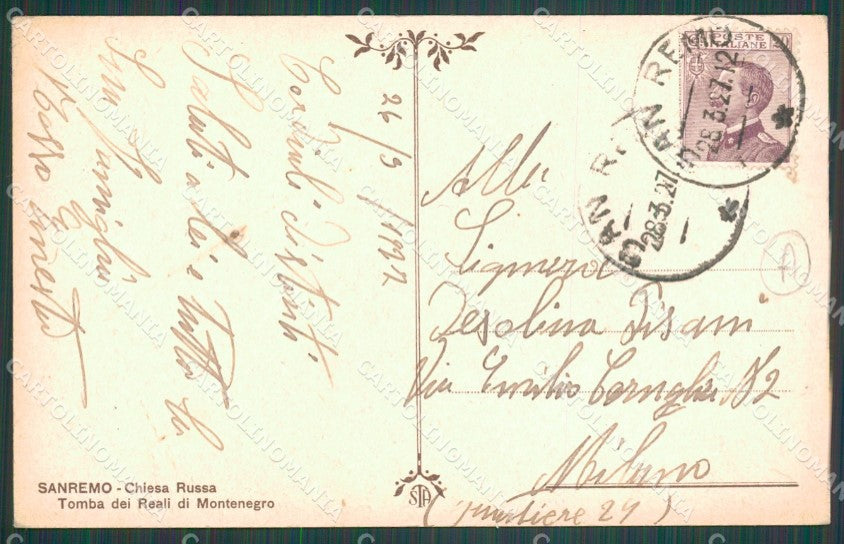 26/3/1927
Cordiali distinti
Saluti a lei e tutta la
Sua famiglia
Ernesto
Alla
Signora
Desolina Pisani
Via Emilio Cornalia 32
Milano
(quartiere 24)
SANREMO - Chiesa Russa
Tomba dei Reali di Montenegro
STA
POSTE
ITALIANE
SAN REMO
28.3.27.12
SAN R
28.3.27
CARTOLINOMANIA